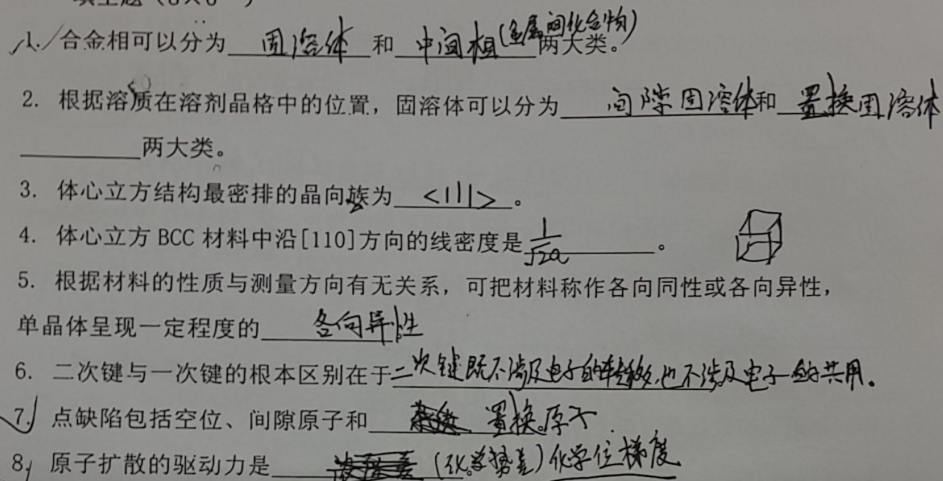 1. 合金相可以分为 固溶体 和 中间相(金属间化合物) 两大类。
2. 根据溶质在溶剂晶格中的位置，固溶体可以分为 间隙固溶体 和 置换固溶体
两大类。
3. 体心立方结构最密排的晶向族为 <111> 。
4. 体心立方 BCC 材料中沿[110]方向的线密度是 1/√2a 。
5. 根据材料的性质与测量方向有无关系，可把材料称作各向同性或各向异性，
单晶体呈现一定程度的 各向异性
6. 二次键与一次键的根本区别在于 二次键既不涉及电子的转移，也不涉及电子的共用。
7. 点缺陷包括空位、间隙原子和 置换原子
8. 原子扩散的驱动力是 (化学势差) 化学位梯度